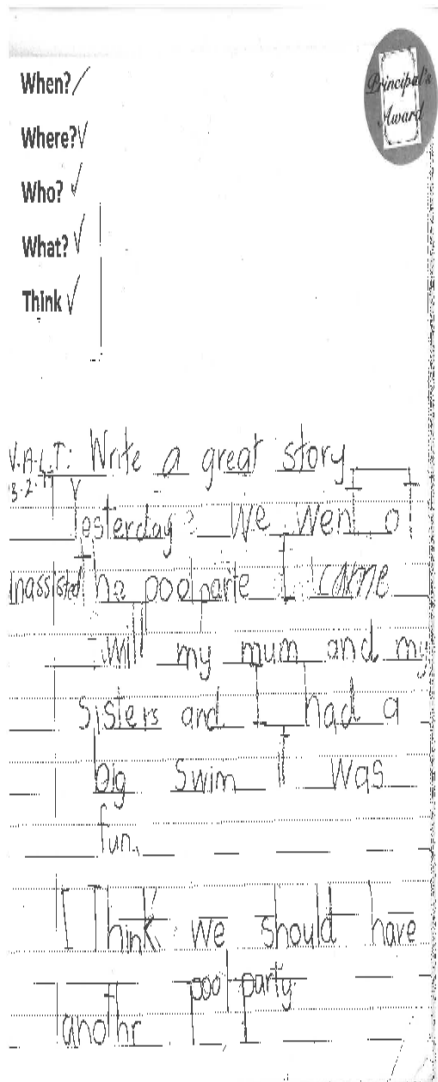 When?
Where?
Who?
What?
Think
Principal's
Award
W.A.L.T: Write a great story
Yesterday We Went to
Unassisted the poolparte I came
with my mum and my
sisters and I had a
big swim it was
fun.
I Think we should have
anothr pool party